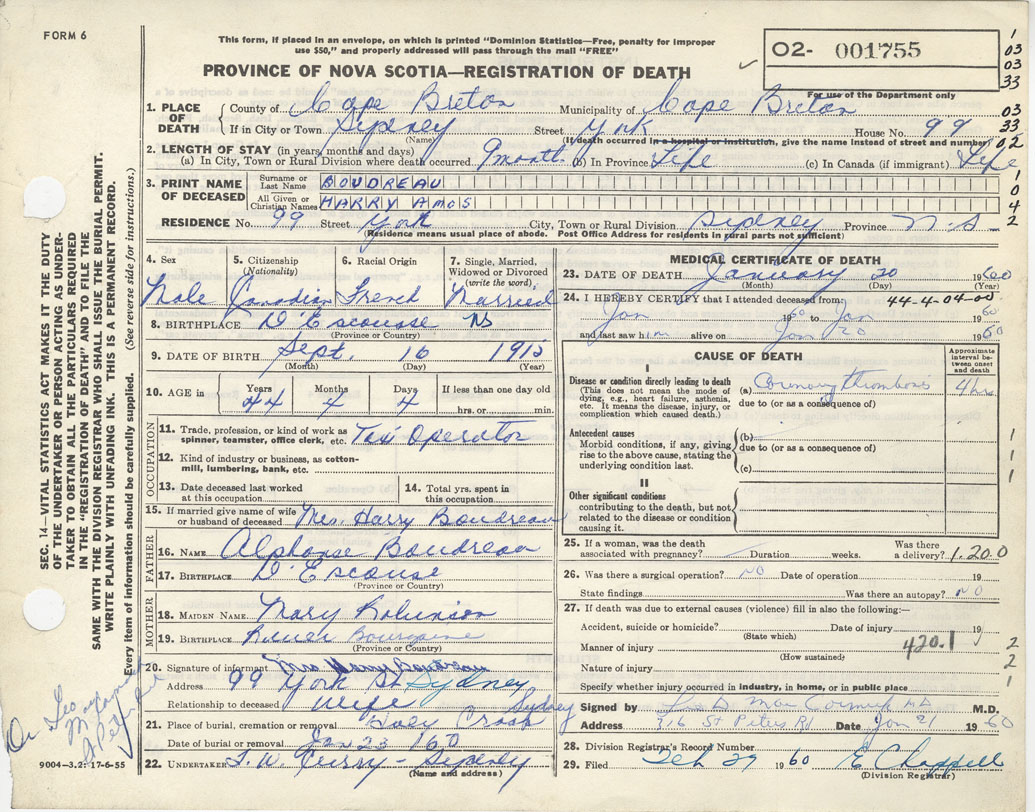 FORM 6
This form, if placed in an envelope, on which is printed "Dominion Statistics—Free, penalty for improper
use $50," and properly addressed will pass through the mail "FREE"
PROVINCE OF NOVA SCOTIA—REGISTRATION OF DEATH
02- 001755
For use of the Department only
1
03
03
33
03
33
02
1
0
4
2
1. PLACE OF DEATH
County of Cape Breton Municipality of Cape Breton
If in City or Town Sydney Street York House No. 99
(Name) (If death occurred in a hospital or institution, give the name instead of street and number)
2. LENGTH OF STAY (in years, months and days)
(a) In City, Town or Rural Division where death occurred 9 month (b) In Province Life (c) In Canada (if immigrant) Life
3. PRINT NAME OF DECEASED
Surname or Last Name BOUDREAU
All Given or Christian Names HARRY AMOS
RESIDENCE No. 99 Street York City, Town or Rural Division Sydney Province N.S
(Residence means usual place of abode. Post Office Address for residents in rural parts not sufficient)
4. Sex Male
5. Citizenship (Nationality) Canadian
6. Racial Origin French
7. Single, Married, Widowed or Divorced (write the word) Married
8. BIRTHPLACE D'Escousse NS
(Province or Country)
9. DATE OF BIRTH Sept. 16 1915
(Month) (Day) (Year)
10. AGE in Years 44 Months 4 Days 4 If less than one day old
hrs. or min.
OCCUPATION
11. Trade, profession, or kind of work as
spinner, teamster, office clerk, etc. Taxi Operator
12. Kind of industry or business, as cotton-
mill, lumbering, bank, etc.
13. Date deceased last worked
at this occupation
14. Total yrs. spent in
this occupation
15. If married give name of wife
or husband of deceased Mrs. Harry Boudreau
FATHER
16. NAME Alphonse Boudreau
17. BIRTHPLACE D'Escouse
(Province or Country)
MOTHER
18. MAIDEN NAME Mary Robinson
19. BIRTHPLACE River Bourgeois
(Province or Country)
20. Signature of informant Mrs Harry Boudreau
Address 99 York St Sydney
Relationship to deceased Wife
21. Place of burial, cremation or removal Holy Cross Sydney
Date of burial or removal Jan 23 1960
22. UNDERTAKER T. W. Curry - Sydney
(Name and address)
MEDICAL CERTIFICATE OF DEATH
23. DATE OF DEATH January 20 1960
(Month) (Day) (Year)
24. I HEREBY CERTIFY that I attended deceased from: 44-4-04-00
Jan 19 to Jan 1960
and last saw him alive on Jan 20 1960
CAUSE OF DEATH
Approximate interval between onset and death
I
Disease or condition directly leading to death
(This does not mean the mode of
dying, e.g., heart failure, asthenia,
etc. It means the disease, injury, or
complication which caused death.)
(a) Coronary thrombosis 4 hrs
due to (or as a consequence of)
Antecedent causes
Morbid conditions, if any, giving
rise to the above cause, stating the
underlying condition last.
(b) 1
due to (or as a consequence of) 1
(c) 1
II
Other significant conditions
contributing to the death, but not
related to the disease or condition
causing it.
25. If a woman, was the death
associated with pregnancy? Duration weeks. Was there
a delivery? 1.200
26. Was there a surgical operation? NO Date of operation 19
State findings Was there an autopsy? NO
27. If death was due to external causes (violence) fill in also the following:—
Accident, suicide or homicide? Date of injury 19
(State which)
Manner of injury 420.1 2
(How sustained)
Nature of injury 2
Specify whether injury occurred in industry, in home, or in public place 1
Signed by M.D.
Address 316 St Peters Rd Date Jan 21 1960
28. Division Registrar's Record Number
29. Filed Feb 29 1960 E Chappell
(Division Registrar)
SEC. 14—VITAL STATISTICS ACT MAKES IT THE DUTY
OF THE UNDERTAKER OR PERSON ACTING AS UNDER-
TAKER TO OBTAIN ALL THE PARTICULARS REQUIRED
IN THE "REGISTRATION OF DEATH" AND FILE THE
SAME WITH THE DIVISION REGISTRAR WHO SHALL ISSUE THE BURIAL PERMIT.
WRITE PLAINLY WITH UNFADING INK. THIS IS A PERMANENT RECORD.
Every item of information should be carefully supplied. (See reverse side for instructions.)
Dr Leo
9004-3.2: 17-6-55